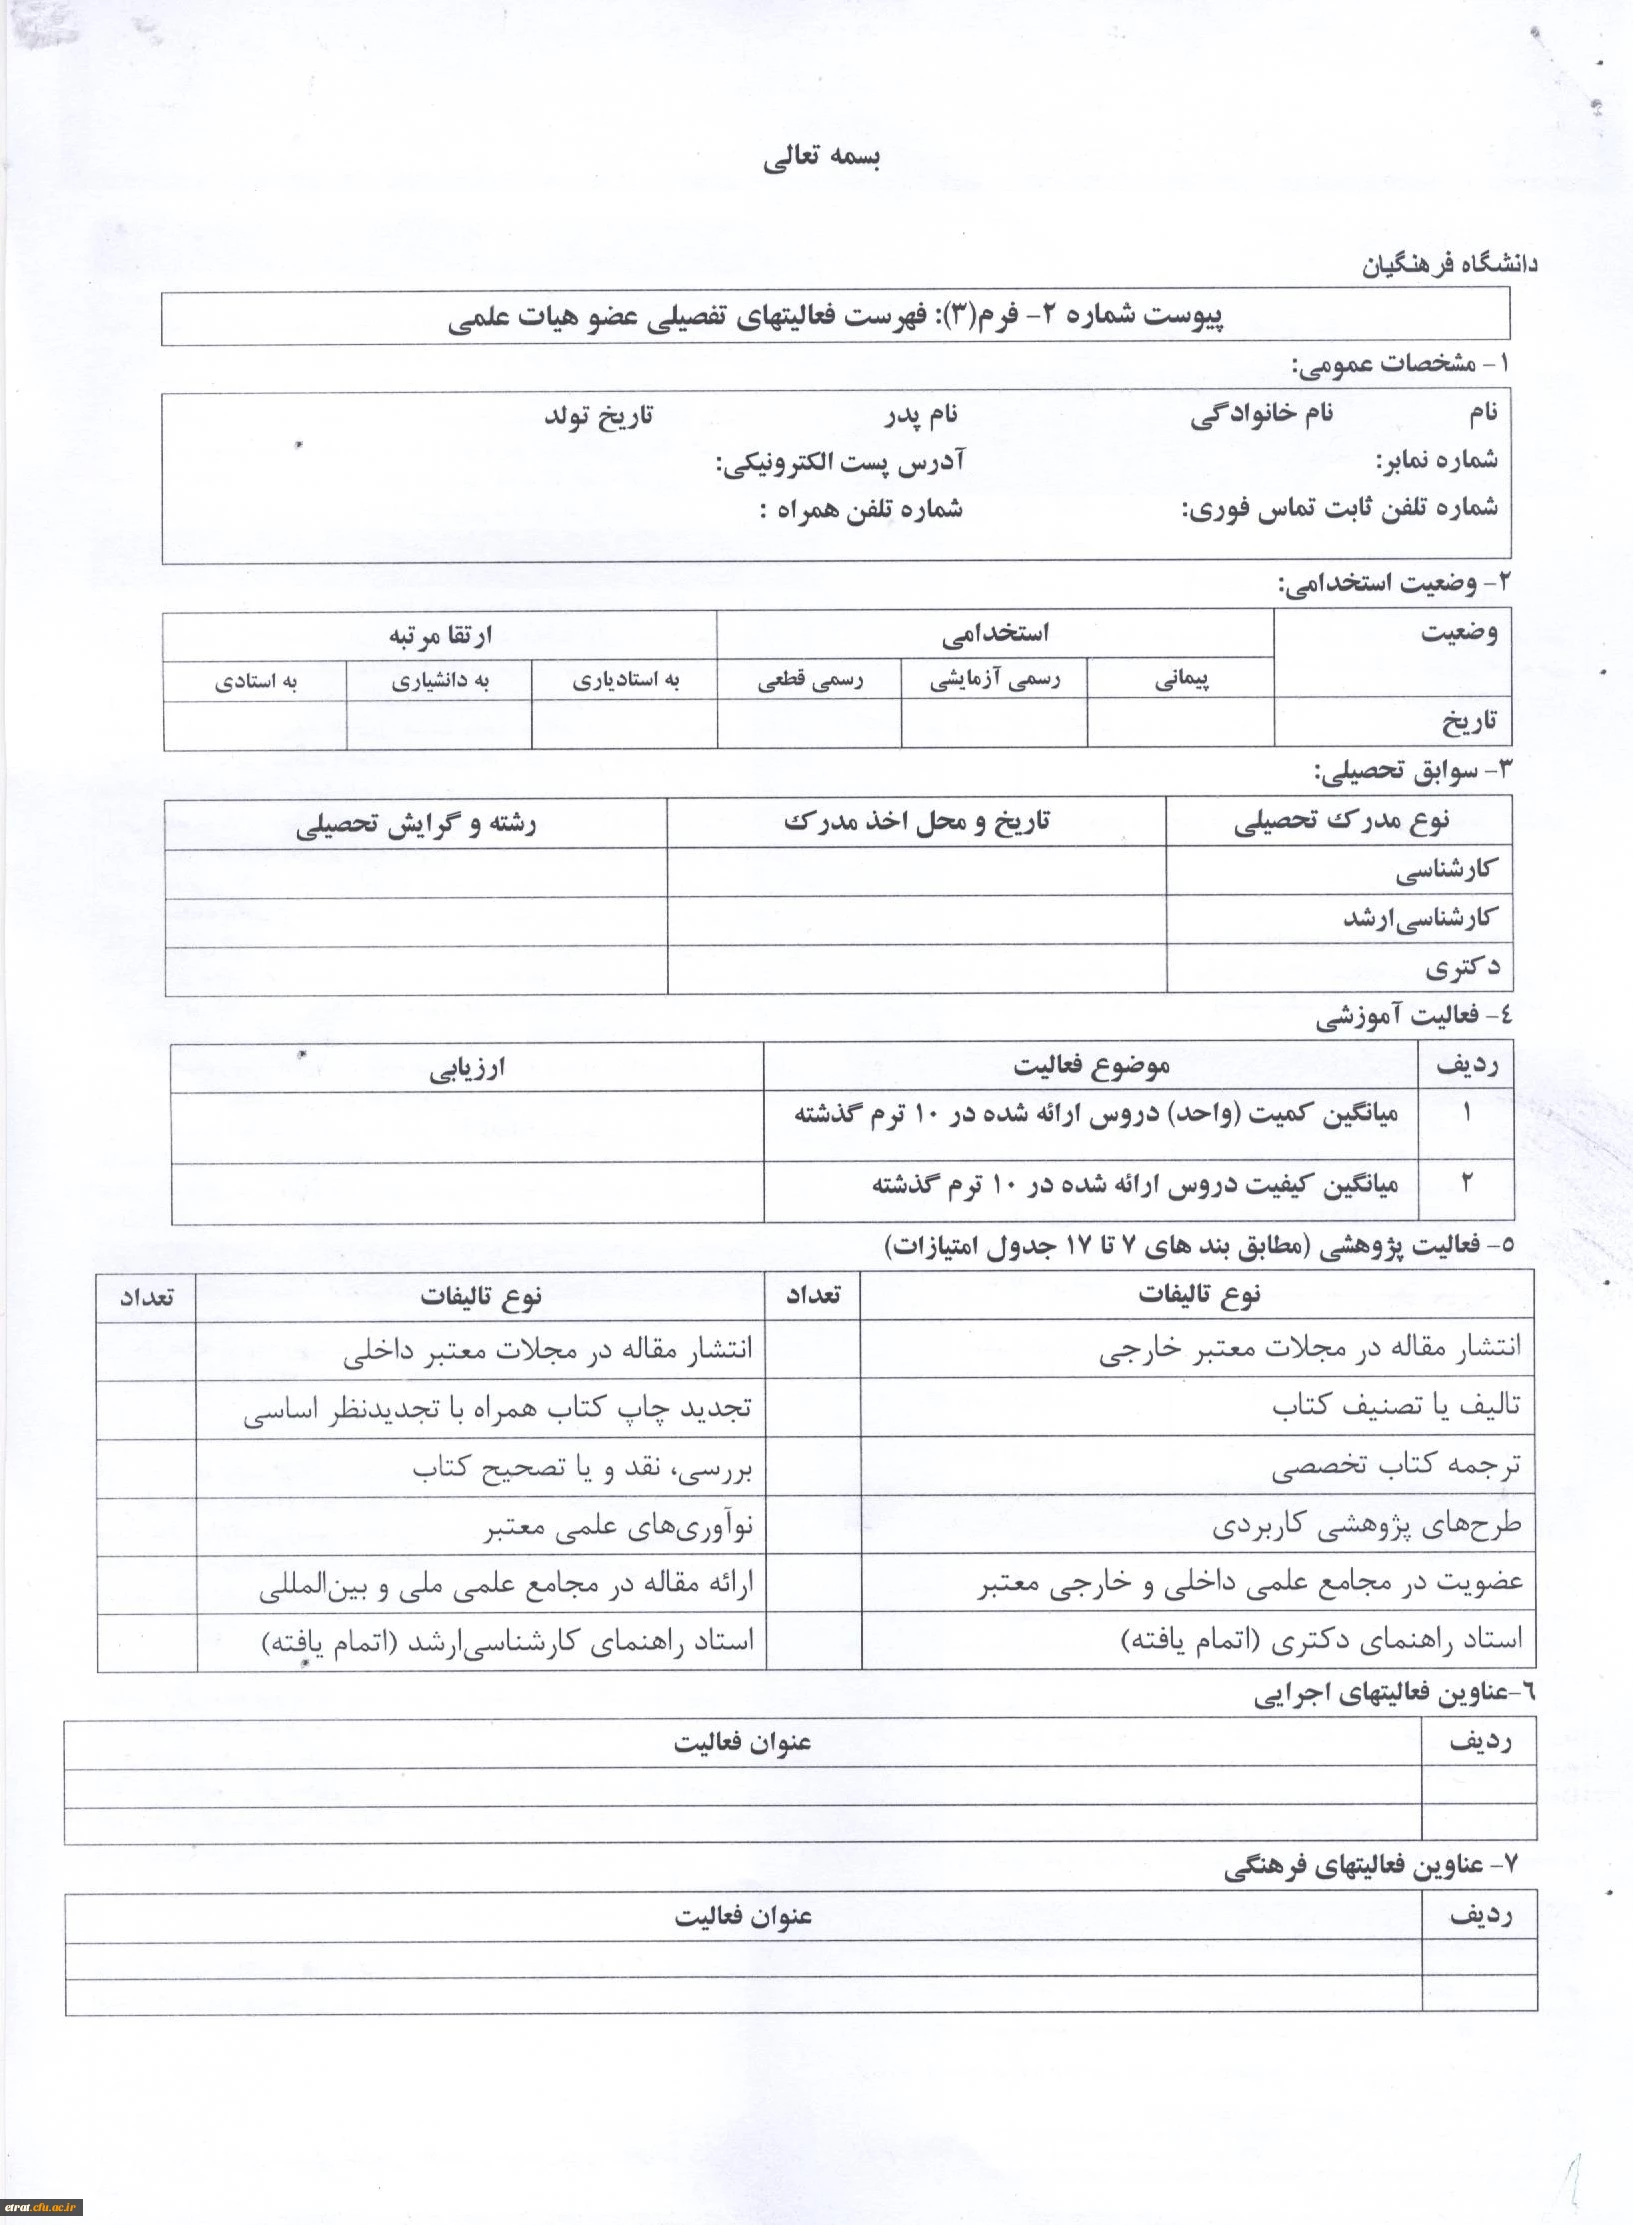 بسمه تعالی
دانشگاه فرهنگیان
پیوست شماره ۲- فرم(۳): فهرست فعالیتهای تفصیلی عضو هیات علمی
۱- مشخصات عمومی:
نام نام خانوادگی نام پدر تاریخ تولد
شماره نمابر: آدرس پست الکترونیکی:
شماره تلفن ثابت تماس فوری: شماره تلفن همراه :
۲- وضعیت استخدامی:
وضعیت استخدامی ارتقا مرتبه
پیمانی رسمی آزمایشی رسمی قطعی به استادیاری به دانشیاری به استادی
تاریخ
۳- سوابق تحصیلی:
نوع مدرک تحصیلی تاریخ و محل اخذ مدرک رشته و گرایش تحصیلی
کارشناسی
کارشناسی‌ارشد
دکتری
٤- فعالیت آموزشی
ردیف موضوع فعالیت ارزیابی
۱ میانگین کمیت (واحد) دروس ارائه شده در ۱۰ ترم گذشته
۲ میانگین کیفیت دروس ارائه شده در ۱۰ ترم گذشته
۵- فعالیت پژوهشی (مطابق بند های ۷ تا ۱۷ جدول امتیازات)
نوع تالیفات تعداد نوع تالیفات تعداد
انتشار مقاله در مجلات معتبر خارجی انتشار مقاله در مجلات معتبر داخلی
تالیف یا تصنیف کتاب تجدید چاپ کتاب همراه با تجدیدنظر اساسی
ترجمه کتاب تخصصی بررسی، نقد و یا تصحیح کتاب
طرح‌های پژوهشی کاربردی نوآوری‌های علمی معتبر
عضویت در مجامع علمی داخلی و خارجی معتبر ارائه مقاله در مجامع علمی ملی و بین‌المللی
استاد راهنمای دکتری (اتمام یافته) استاد راهنمای کارشناسی‌ارشد (اتمام یافته)
٦-عناوین فعالیتهای اجرایی
ردیف عنوان فعالیت
۷- عناوین فعالیتهای فرهنگی
ردیف عنوان فعالیت
etrat.cfu.ac.ir